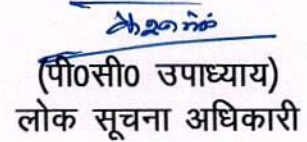 (पी०सी० उपाध्याय)
लोक सूचना अधिकारी